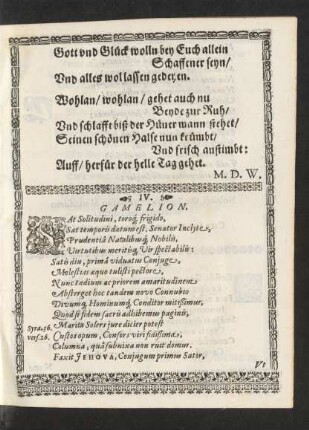 Gott vnd Glück wolln bey Euch allein
Schaffener seyn/
Vnd alles wol lassen gedeyen.
Wohlan/ wohlan/ gehet auch nu
Beyde zur Ruh/
Vnd schlafft biß der Hüner mann stehet/
Seinen schönen Halse nun krümbt/
Vnd frisch anstimbt:
Auff/ herfür der helle Tag gehet.
M. D. W.
IV.
GAMELION.
SAt Solitudini, toroq́; frigido,
Sat temporis datum est, Senator Inclyte,
Prudentiâ Natalibusq́; Nobilis,
Virtutibus meritisq́; Vir spectabilis:
Satis diu, primâ viduatus Conjuge,
Molestias æquo tulisti pectore,
Nunc tædium ac priorem amaritudinem
Absterget hoc tandem novo Connubio
Divumq́; Hominumq́; Conditor mitissimus,
Quod si fidem sacris adhibemus paginis,
Syra. 36. Maritus Solers jure dicier potest
vers. 26. Custos opum, Consors viri fidissima,
Columna, quâ subnixa non ruit domus.
Faxit JEHOVA, Conjugum primus Sator,
Vt